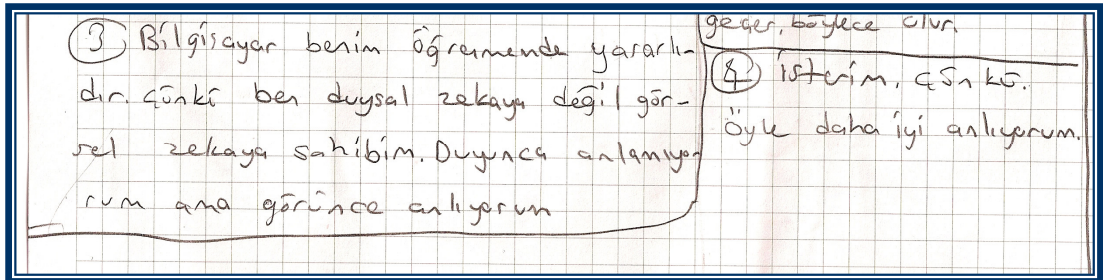 3 Bilgisayar benim öğremende yararlı-
dır. çünki ben duysal zekaya değil gör-
sel zekaya sahibim. Duyunca anlamıyo
rum ama görünce anlıyorum
geçer, böylece olur.
4 isterim, çünkü.
öyle daha iyi anlıyorum.